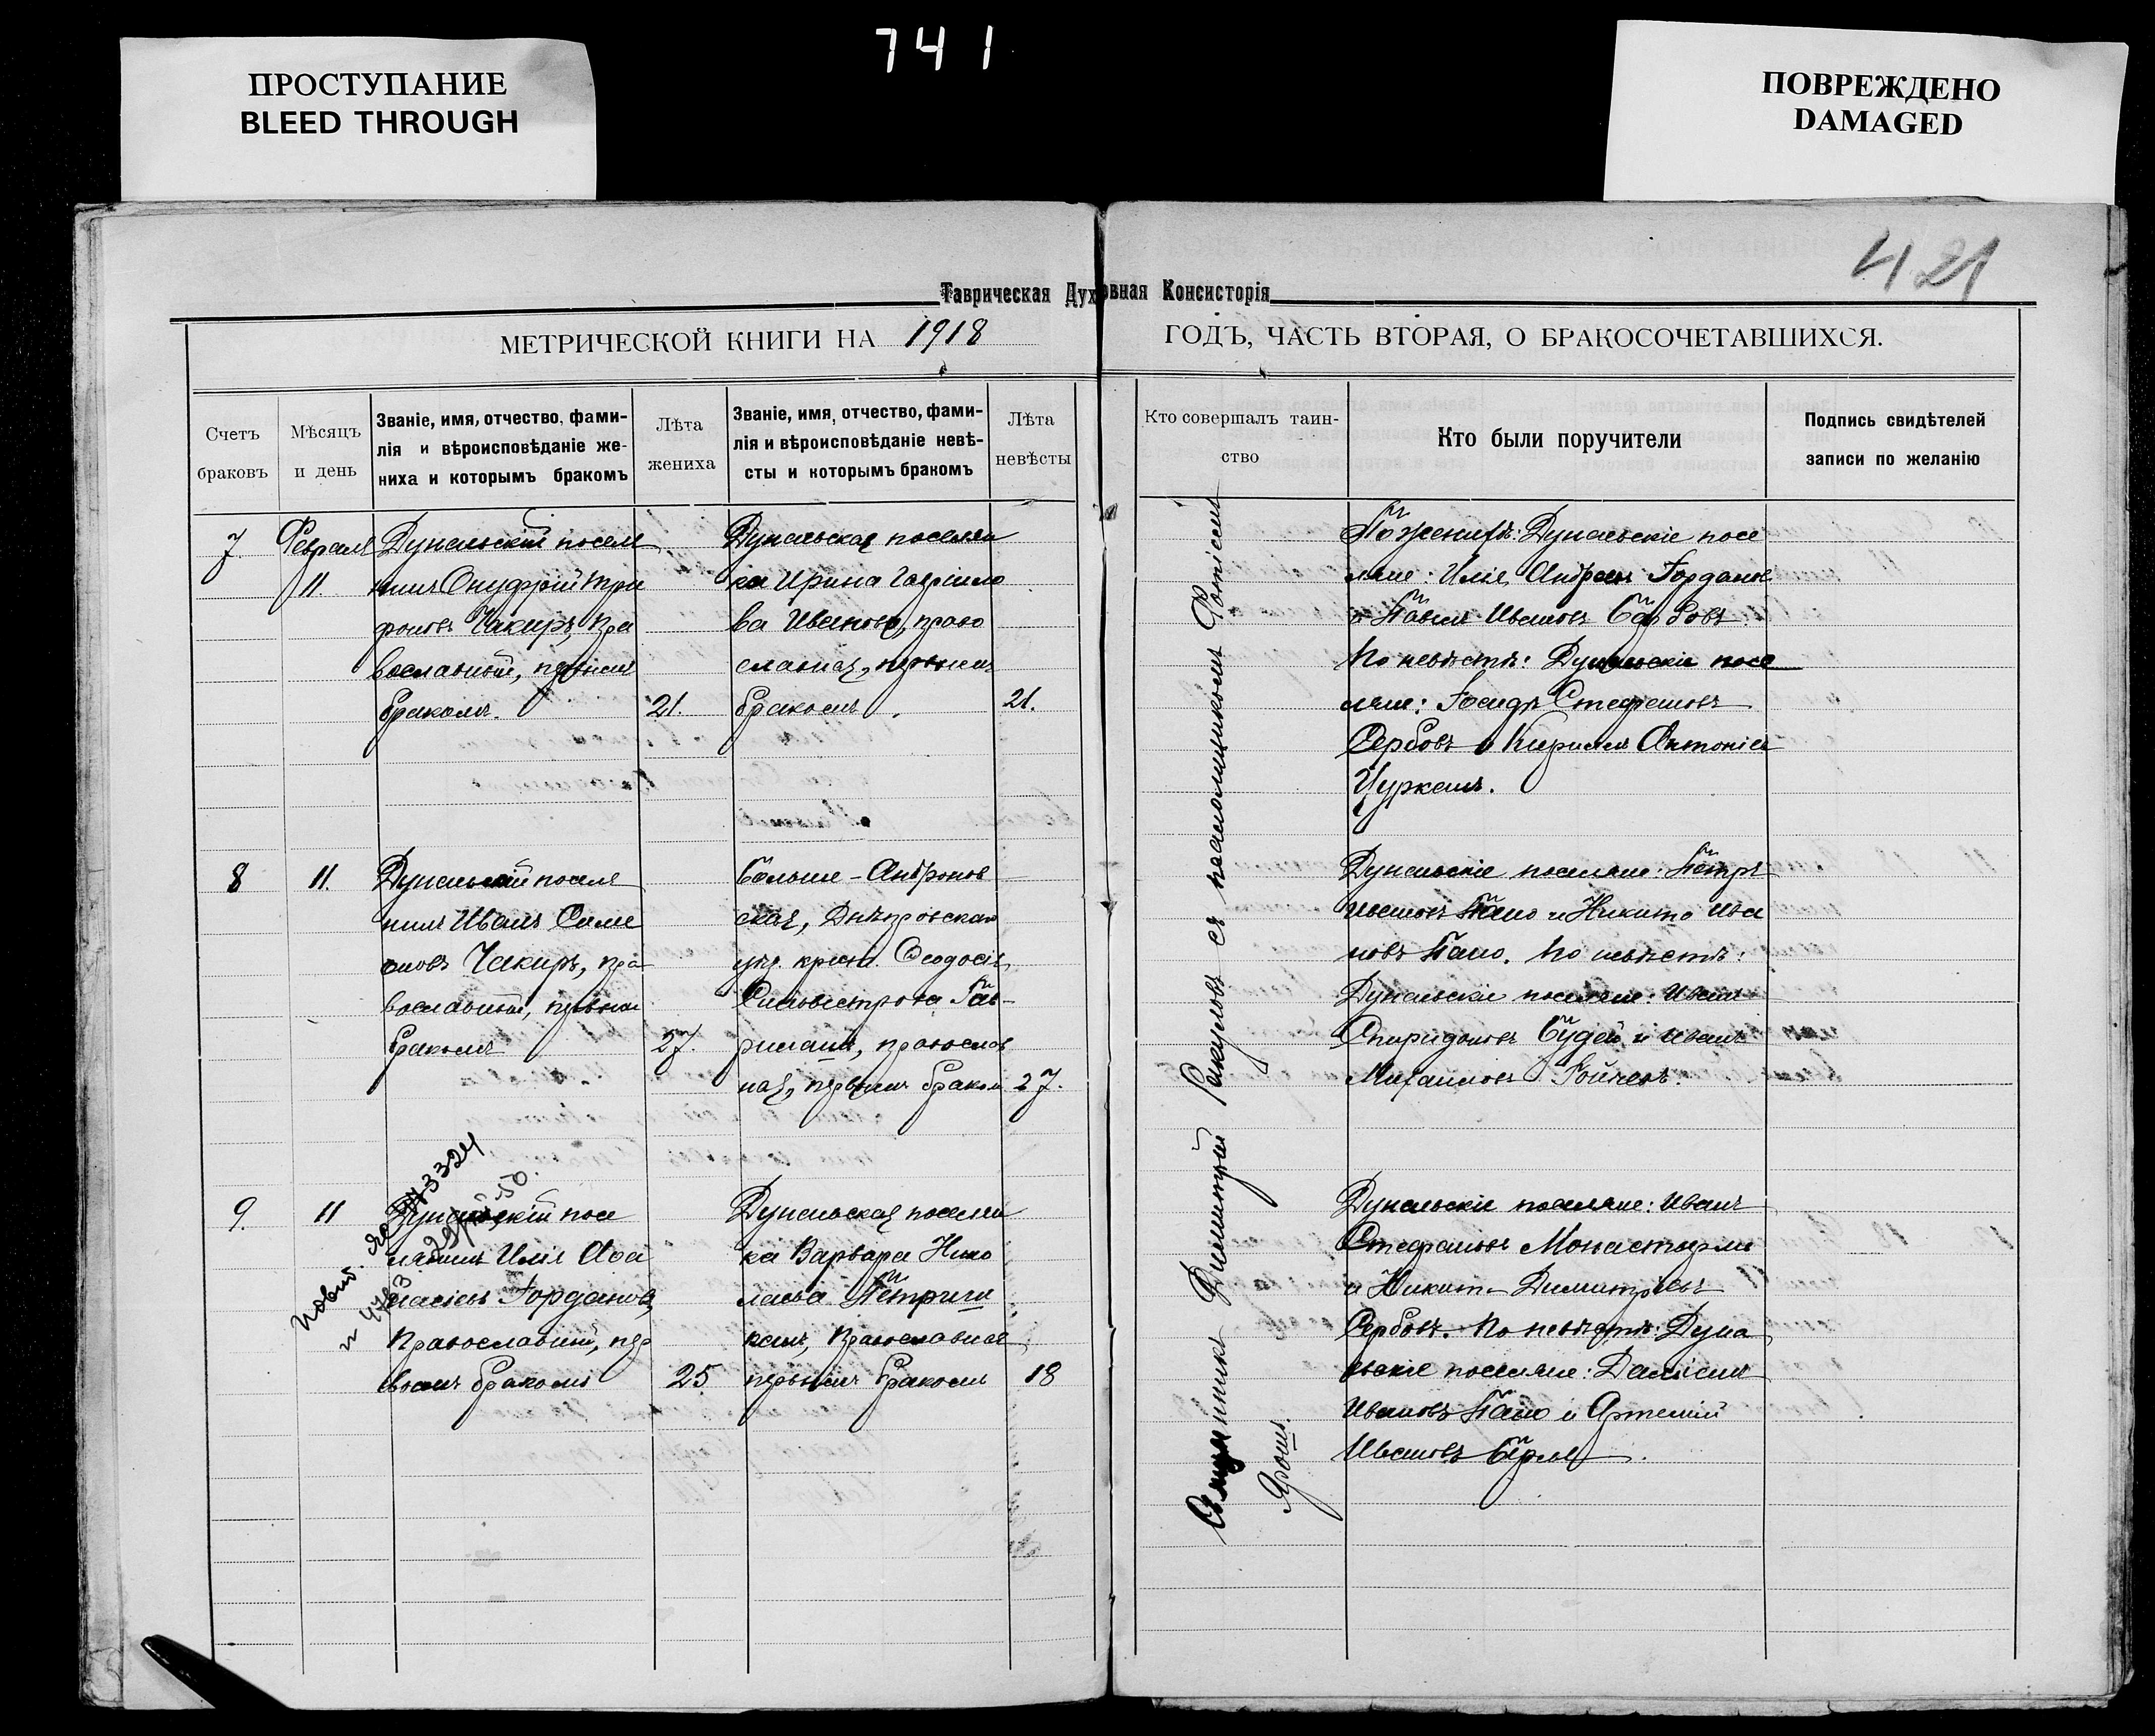 741
ПРОСТУПАНИЕ
BLEED THROUGH
ПОВРЕЖДЕНО
DAMAGED
421
Таврическая Духовная Консисторія
МЕТРИЧЕСКОЙ КНИГИ НА 1918 ГОДЪ, ЧАСТЬ ВТОРАЯ, О БРАКОСОЧЕТАВШИХСЯ.
Счетъ
браковъ
Мѣсяцъ
и день
Званіе, имя, отчество, фами-
лія и вѣроисповѣданіе же-
ниха и которымъ бракомъ
Лѣта
жениха
Званіе, имя, отчество, фами-
лія и вѣроисповѣданіе невѣ-
сты и которымъ бракомъ
Лѣта
невѣсты
Кто совершалъ таин-
ство
Кто были поручители
Подпись свидѣтелей
записи по желанію
7.
Февраля
11.
Дунаевскій поселя
нинъ Онуфрій Три
фоновъ Чакиръ, пра
вославный, первымъ
бракомъ.
21.
Дунаевская поселян
ка Ирина Гавриило
ва Иванова, право
славная, первымъ
бракомъ.
21.
По женихѣ: Дунаевскіе посе
ляне: Илія Андреевъ
и Павелъ Ивановъ
По невѣстѣ: Дунаевскіе посе
ляне: Іосифъ Стефановъ
Сербовъ и Кириллъ Антоніевъ
Цурканъ.
8
11.
Дунаевскій поселя
нинъ Иванъ Симе
оновъ Чакиръ, пра
вославный, первымъ
бракомъ
27.
Больше-Андронов
ская, Днѣпровскаго
уѣз. крест. Ѳеодосія
Сильвестрова Гав-
рилашъ, православ
ная, первымъ бракомъ
27.
Дунаевскіе поселяне: Петръ
Ивановъ Пано и Никита Ива
новъ Пано. По невѣстѣ:
Дунаевскіе поселяне: Иванъ
Спиридоновъ и Иванъ
Михаиловъ Гойчевъ.
9.
11
Дунаевскій посе
лянинъ Илія Аѳа
насіевъ Іордановъ,
Православный, пер
вымъ бракомъ
25
Дунаевская поселян
ка Варвара Нико
лаева Петриги
канъ, Православная
первымъ бракомъ
18
Дунаевскіе поселяне: Иванъ
Стефановъ Монастырли
и Никита Димитріевъ
Сербовъ. По невѣстѣ: Дуна
евскіе поселяне: Даміанъ
Ивановъ Пано и Артемій
Ивановъ
Священникъ Димитрій Ракуловъ съ псаломщикомъ